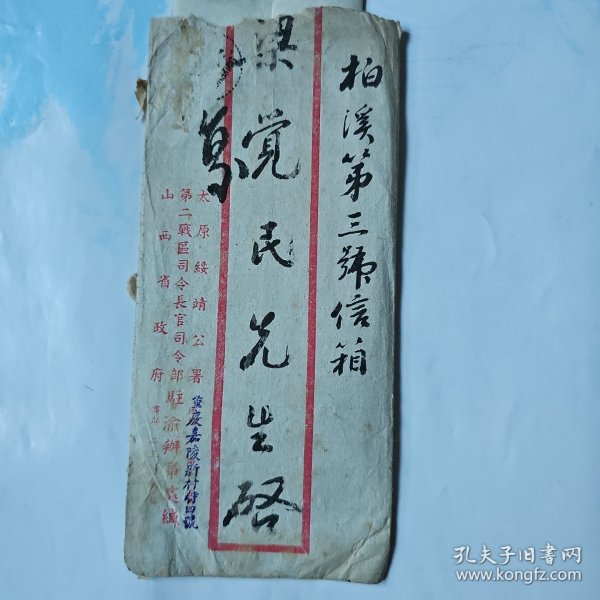 柏溪第三號信箱
梁覺民先生啓
太原綏靖公署
第二戰區司令長官司令部
山西省政府
駐渝辦事處緘
重慶嘉陵新村
孔夫子旧书网
www.kongfz.com